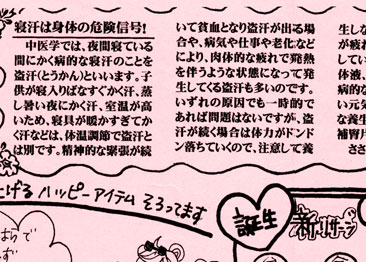 寝汗は身体の危険信号!
　中医学では、夜間寝ている
間にかく病的な寝汗のことを
盗汗(とうかん)といいます。子
供が寝入りばなすぐかく汗、蒸
し暑い夜にかく汗、室温が高
いため、寝具が暖かすぎてか
く汗などは、体温調節で盗汗と
は別です。精神的な緊張が続
いて貧血となり盗汗が出る場
合や、病気や仕事や老化など
により、肉体的な疲れで発熱
を伴うような状態になって発
生してくる盗汗も多いのです。
いずれの原因でも一時的で
あれば問題はないですが、盗
汗が続く場合は体力がドンド
ン落ちていくので、注意して養
生しな
が疲れ
してい
体液、
病的
い元気
な養生
補腎片
ささ
上げる ハッピーアイテム そろってます
誕生
新リサーチ